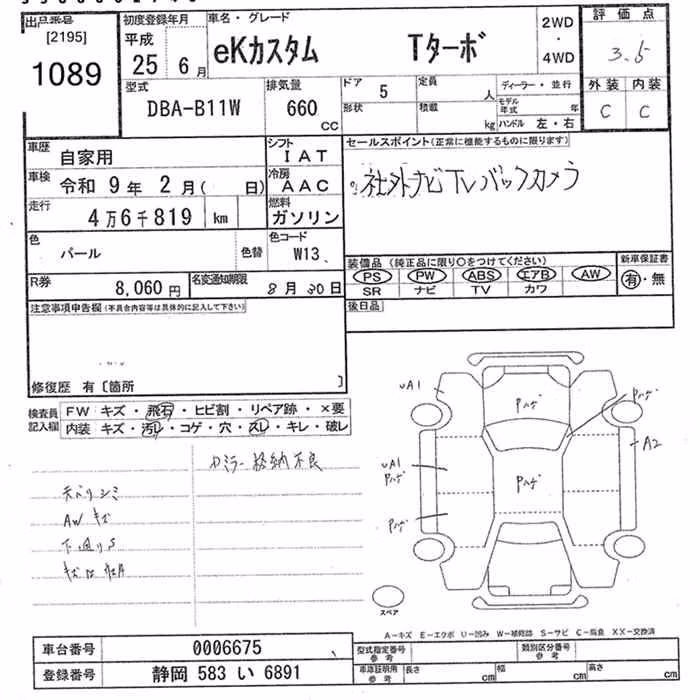 出品番号
[2195]
1089
初度登録年月
平成
25 6月
車名・グレード
eKカスタム Tターボ
2WD
・
4WD
評価点
3.5
外装 内装
C C
型式
DBA-B11W
排気量
660
cc
ドア 5
形状
定員
人
積載
kg
ディーラー・並行
モデル年式 年
ハンドル 左・右
車歴
自家用
シフト
IAT
車検
令和 9年 2月( 日)
冷房
AAC
走行
4万6千819 km
燃料
ガソリン
色
パール
色替
色コード
W13
R券
8,060円
名変通知期限
8月30日
セールスポイント(正常に機能するものに限ります)
社外ナビTVバックカメラ
装備品(純正品に限り○をつけてください)
PS PW ABS エアB AW
SR ナビ TV カワ
新車保証書
有・無
後日品
注意事項申告欄(不具合内容等は具体的に記入して下さい)
修復歴 有〔箇所 〕
検査員記入欄
FW キズ・飛石・ヒビ割・リペア跡・×要
内装 キズ・汚レ・コゲ・穴・スレ・キレ・破レ
Dミラー格納不良
天バリシミ
AWキズ
下廻りS
UA1
Pハゲ
Pハゲ
A2
UA1
Pハゲ
Pハゲ
Pハゲ
スペア
A-キズ E-エクボ U-凹み W-補修跡 S-サビ C-腐食 XX-交換済
車台番号 0006675
登録番号 静岡 583 い 6891
型式指定番号
参考
類別区分番号
参考
車庫証明用
参考
長さ cm
幅 cm
高さ cm